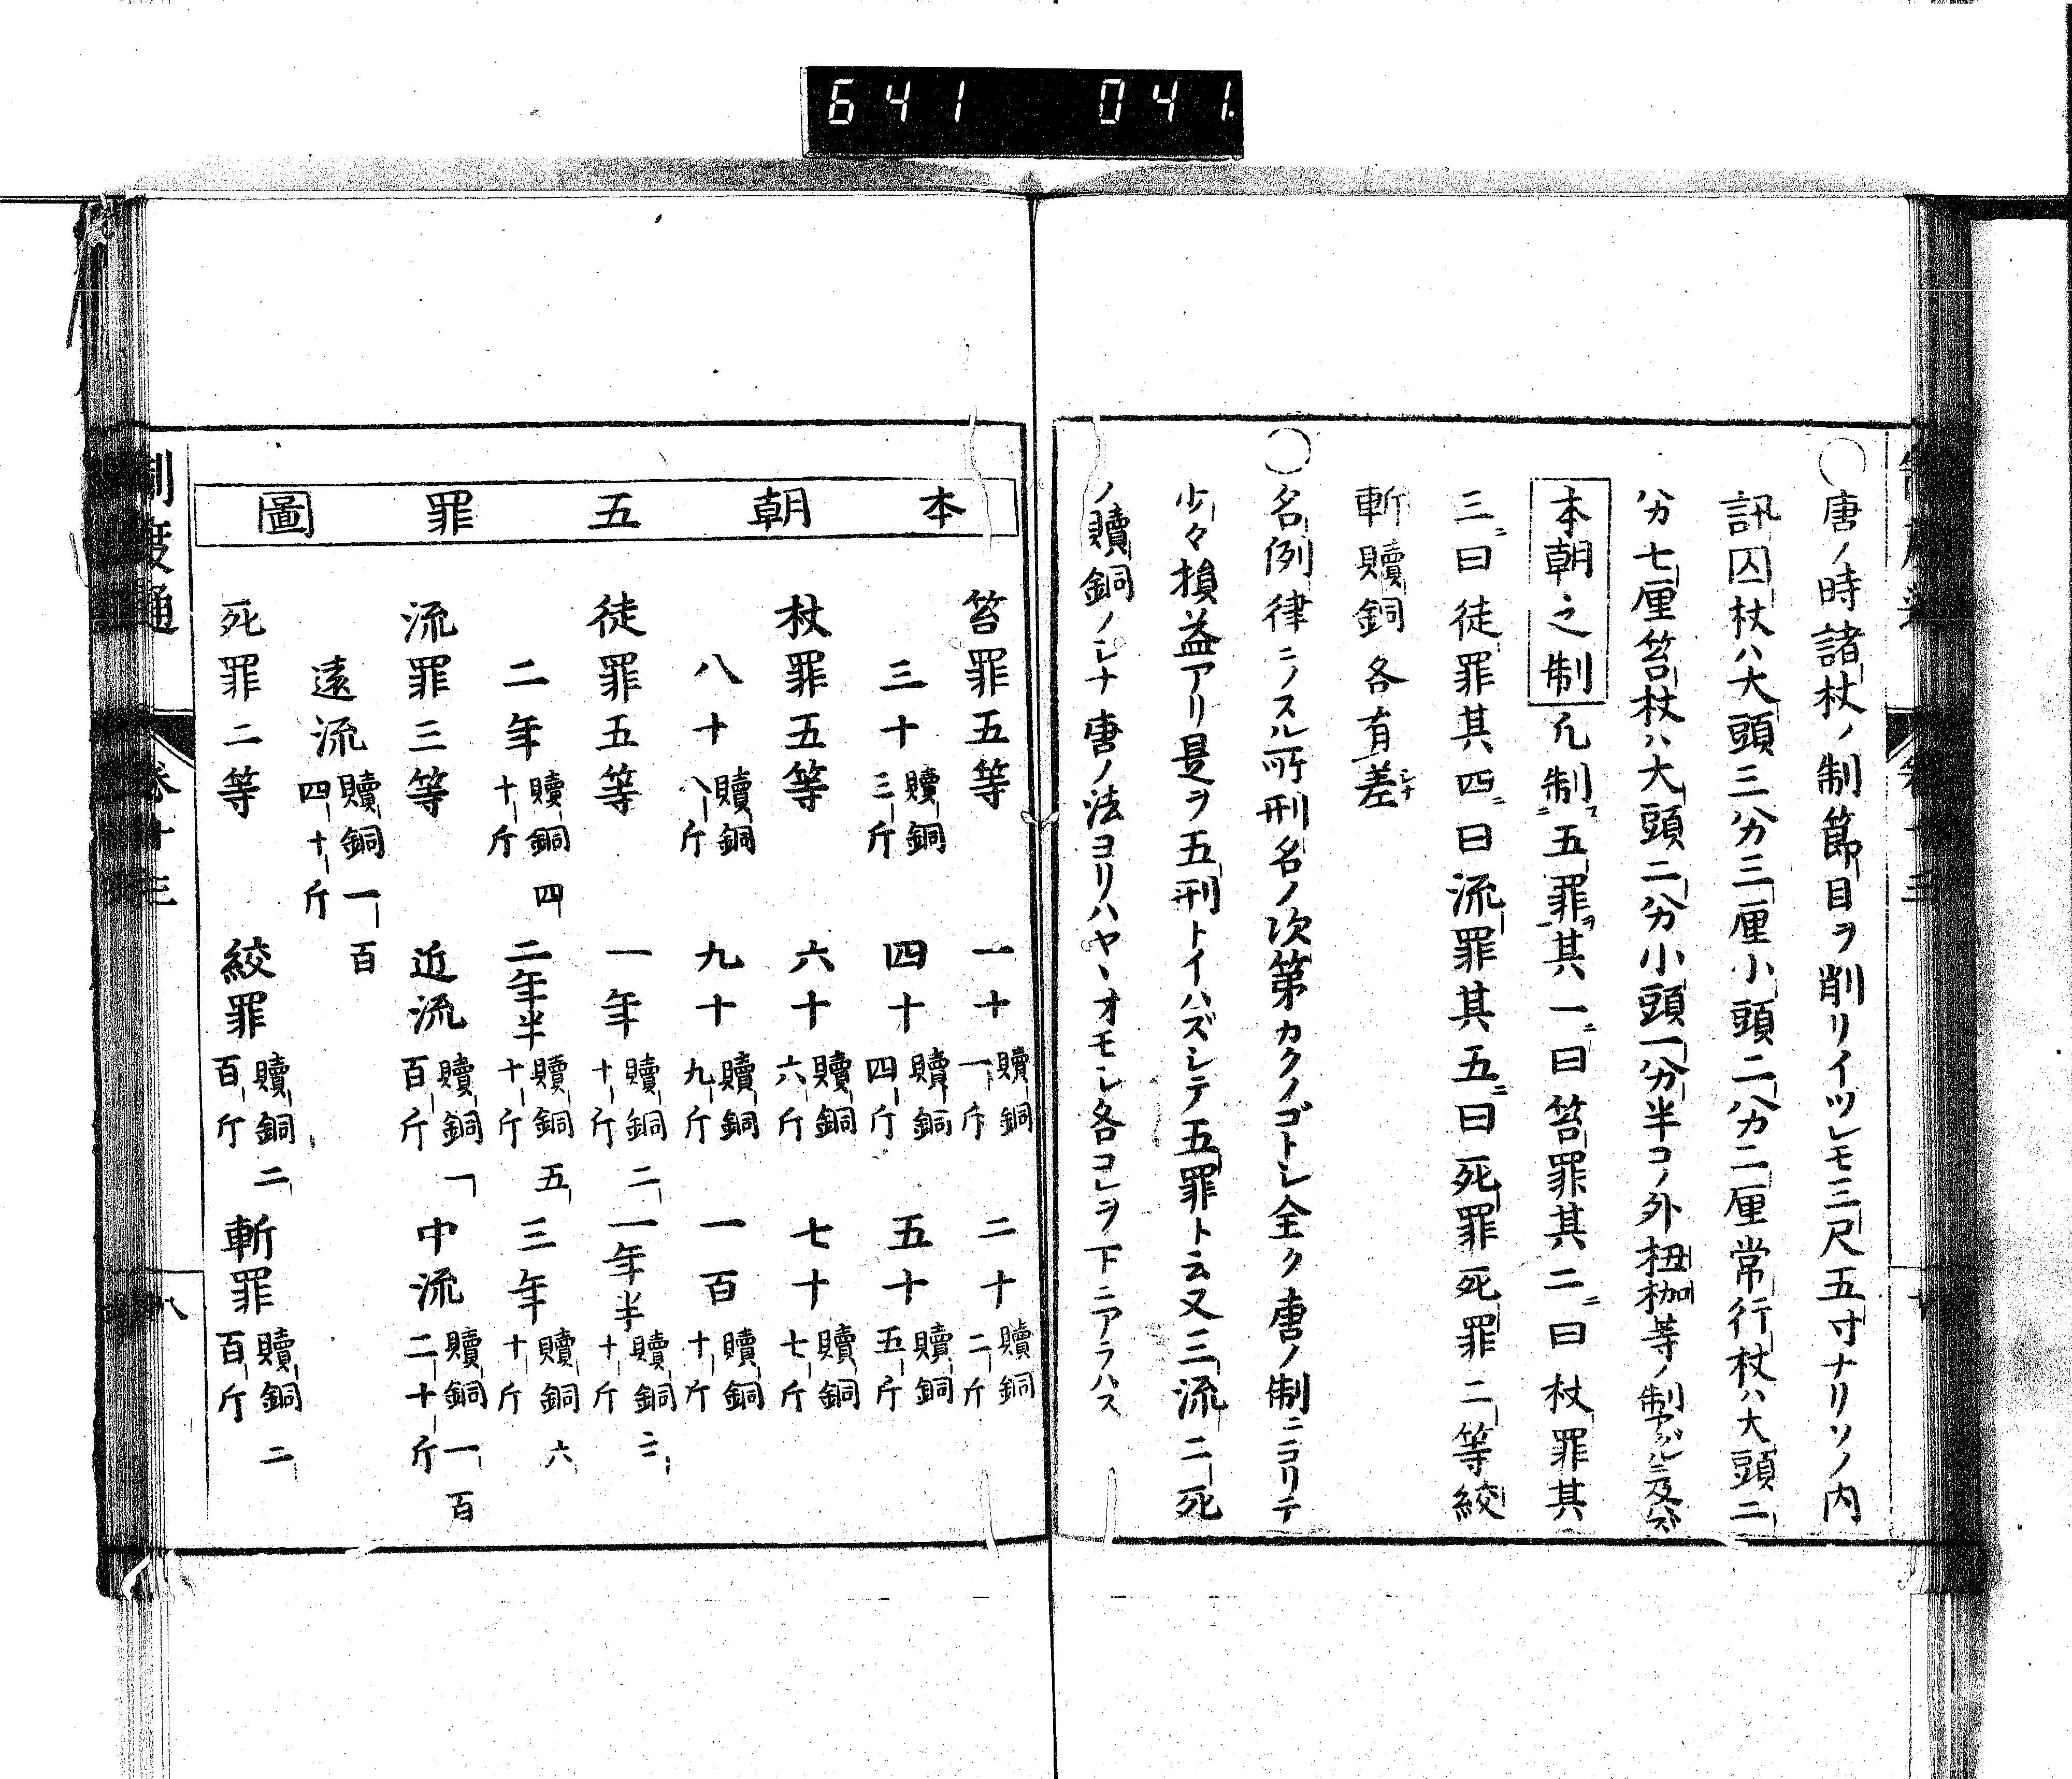 641 041.
〇唐ノ時諸杖ノ制節目ヲ削リイヅレモ三尺五寸ナリソノ内
訊囚杖ハ大頭三分三厘小頭二分二厘常行杖ハ大頭二
分七厘笞杖ハ大頭二分小頭一分半コノ外杻枷等ノ制
本朝之制 凡制五罪其一曰笞罪其二曰杖罪其
三曰徒罪其四曰流罪其五曰死罪死罪二等絞
斬贖銅各有差
〇名例律ニノスル所刑名ノ次第カクノゴトシ全ク唐ノ制ニヨリテ
少々損益アリ是ヲ五刑トイハズシテ五罪ト云又三流二死
ノ贖銅ノシナ唐ノ法ヨリハヤヽオモシ各コレヲ下ニアラハス
本朝五罪圖
笞罪五等 一十 贖銅一斤 二十 贖銅二斤
三十 贖銅三斤 四十 贖銅四斤 五十 贖銅五斤
杖罪五等 六十 贖銅六斤 七十 贖銅七斤
八十 贖銅八斤 九十 贖銅九斤 一百 贖銅十斤
徒罪五等 一年 贖銅二十斤 一年半 贖銅三十斤
二年 贖銅四十斤 二年半 贖銅五十斤 三年 贖銅六十斤
流罪三等 近流 贖銅一百斤 中流 贖銅一百二十斤
遠流 贖銅一百四十斤
死罪二等 絞罪 贖銅二百斤 斬罪 贖銅二百斤
制度通 卷十三 八